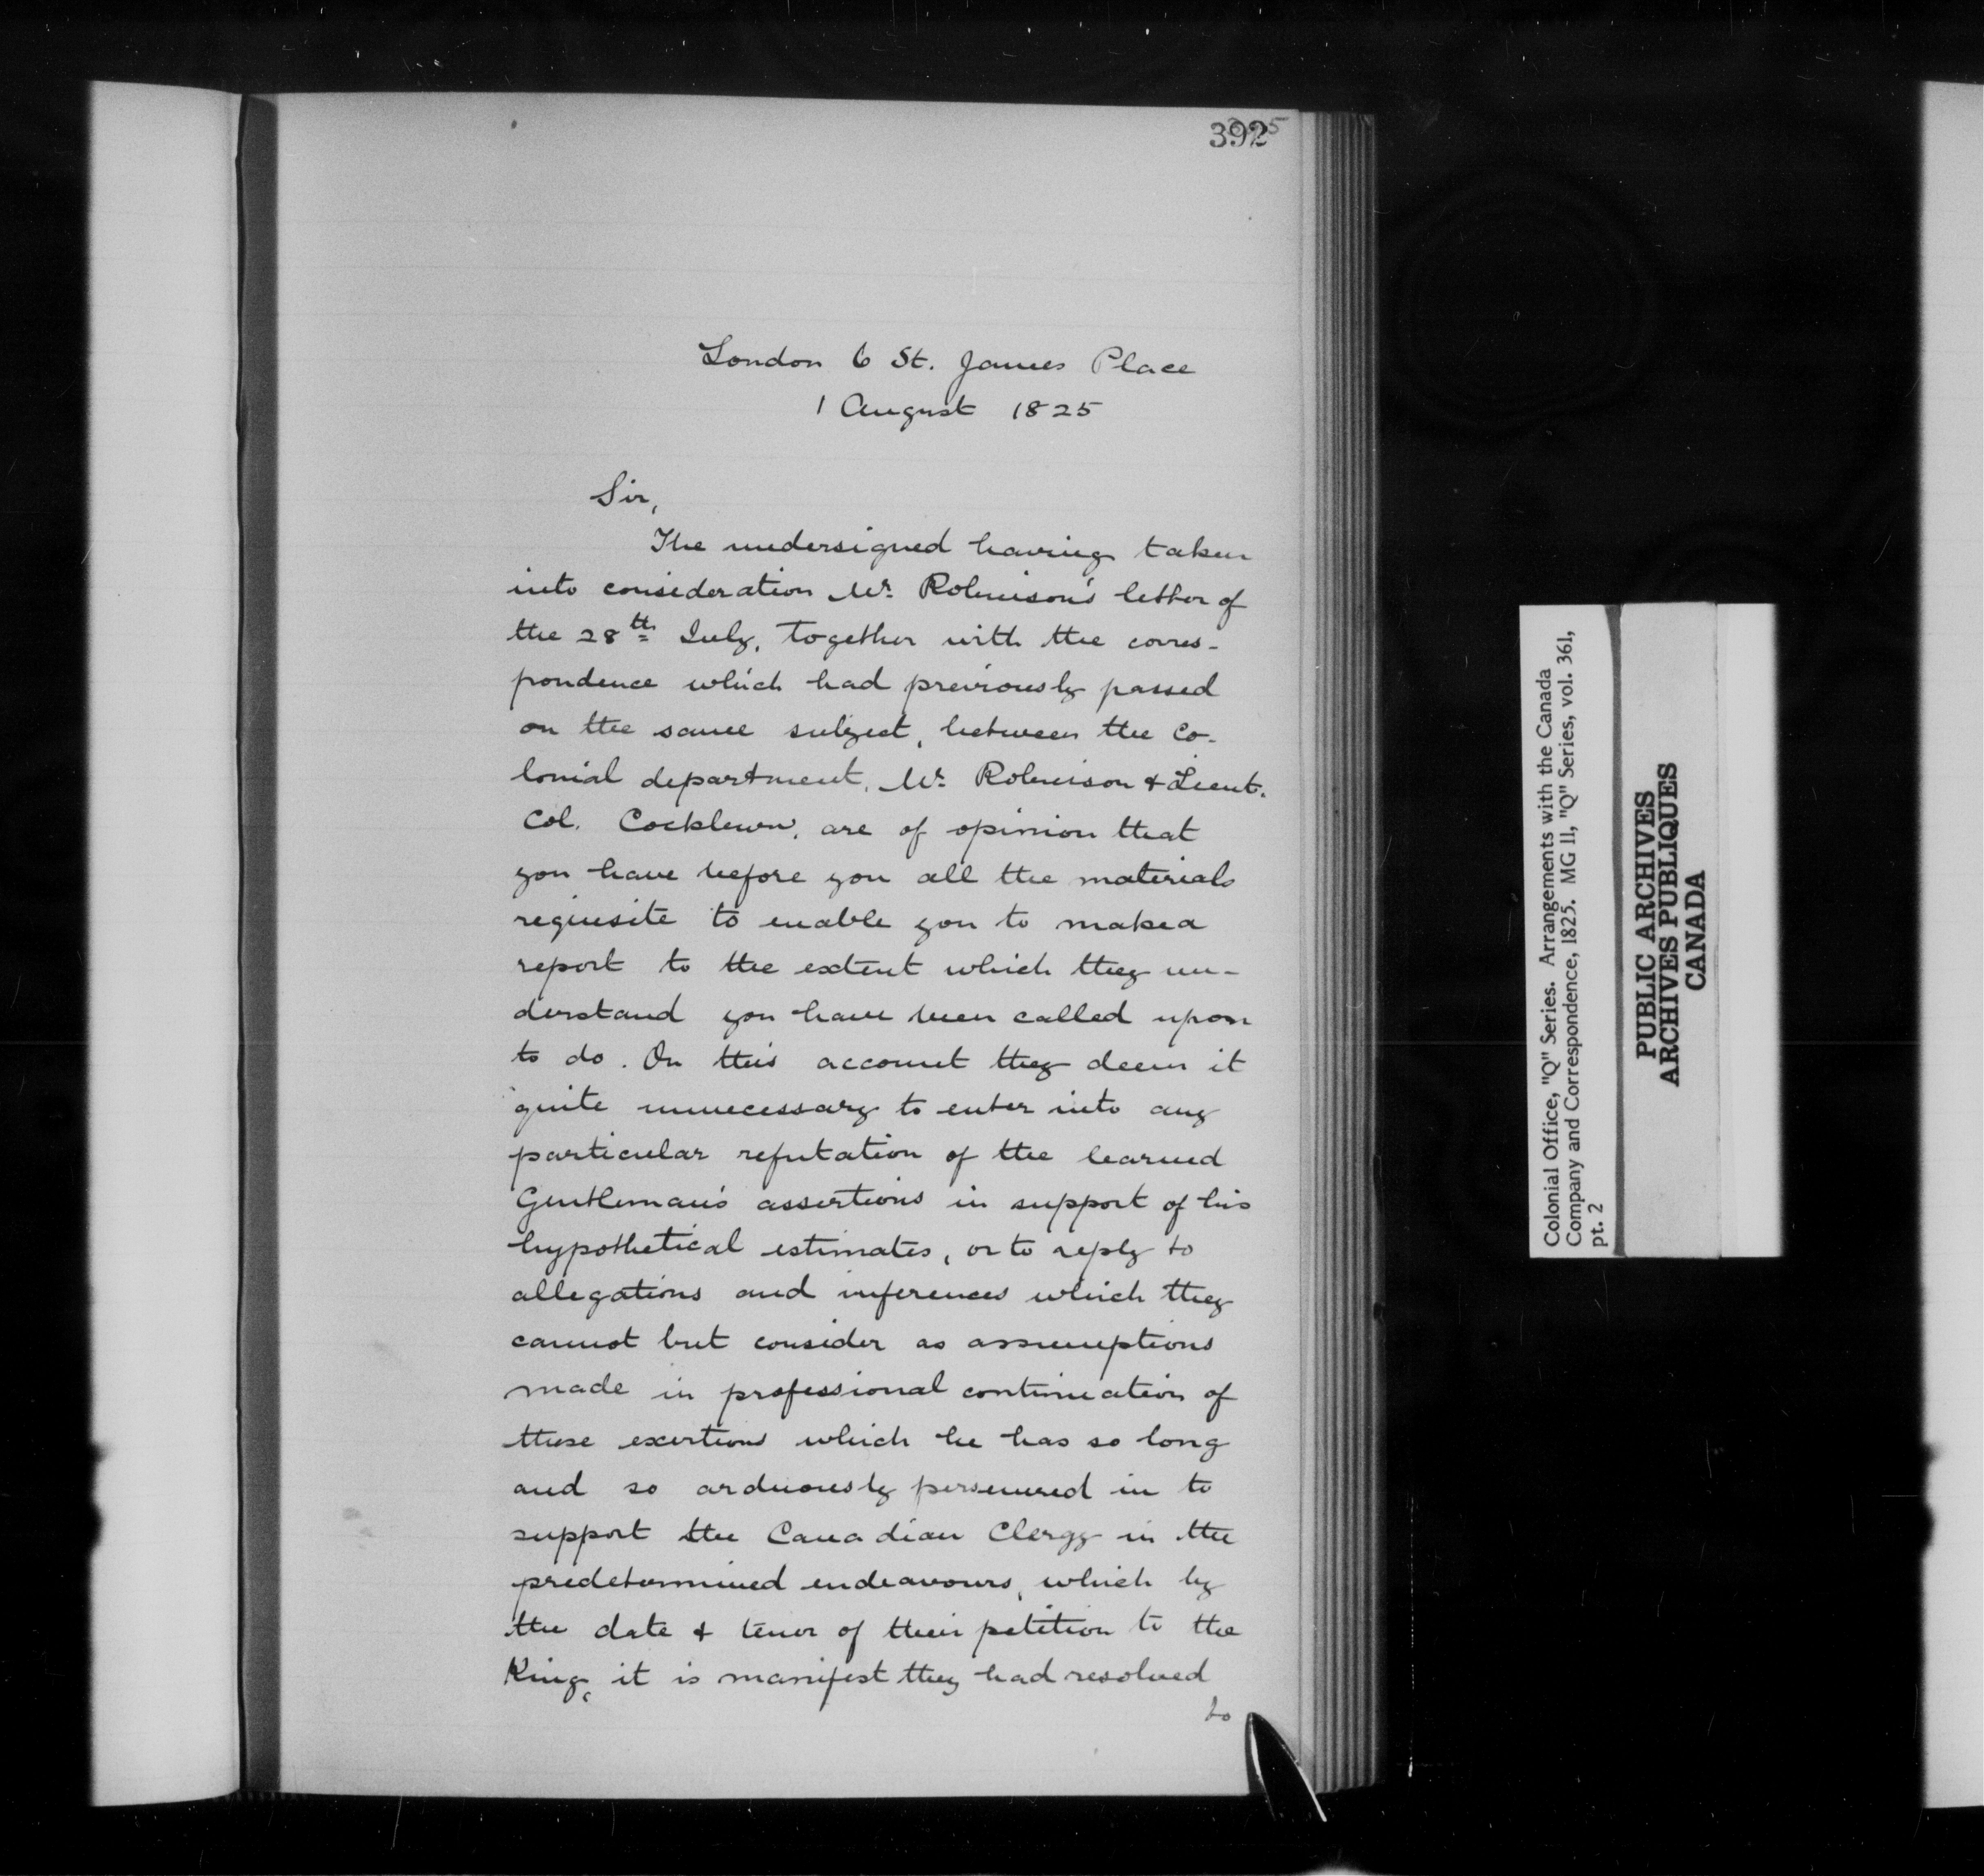 392
London 6 St. James Place
1 August 1825
Sir,
The undersigned having taken
into consideration Mr. Robinson's letter of
the 28th July, together with the corres-
pondence which had previously passed
on the same subject, between the Co-
lonial department, Mr. Robinson & Lieut.
Col. Cockburn, are of opinion that
you have before you all the materials
requisite to enable you to make a
report to the extent which they un-
derstand you have been called upon
to do. On this account they deem it
quite unnecessary to enter into any
particular refutation of the learned
Gentleman's assertions in support of his
hypothetical estimates, or to reply to
allegations and inferences which they
cannot but consider as assumptions
made in professional continuation of
those exertions which he has so long
and so arduously persevered in to
support the Canadian Clergy in the
predetermined endeavours, which by
the date & tenor of their petition to the
King, it is manifest they had resolved
to
Colonial Office, "Q" Series. Arrangements with the Canada
Company and Correspondence, 1825. MG 11, "Q" Series, vol. 361,
pt. 2
PUBLIC ARCHIVES
ARCHIVES PUBLIQUES
CANADA